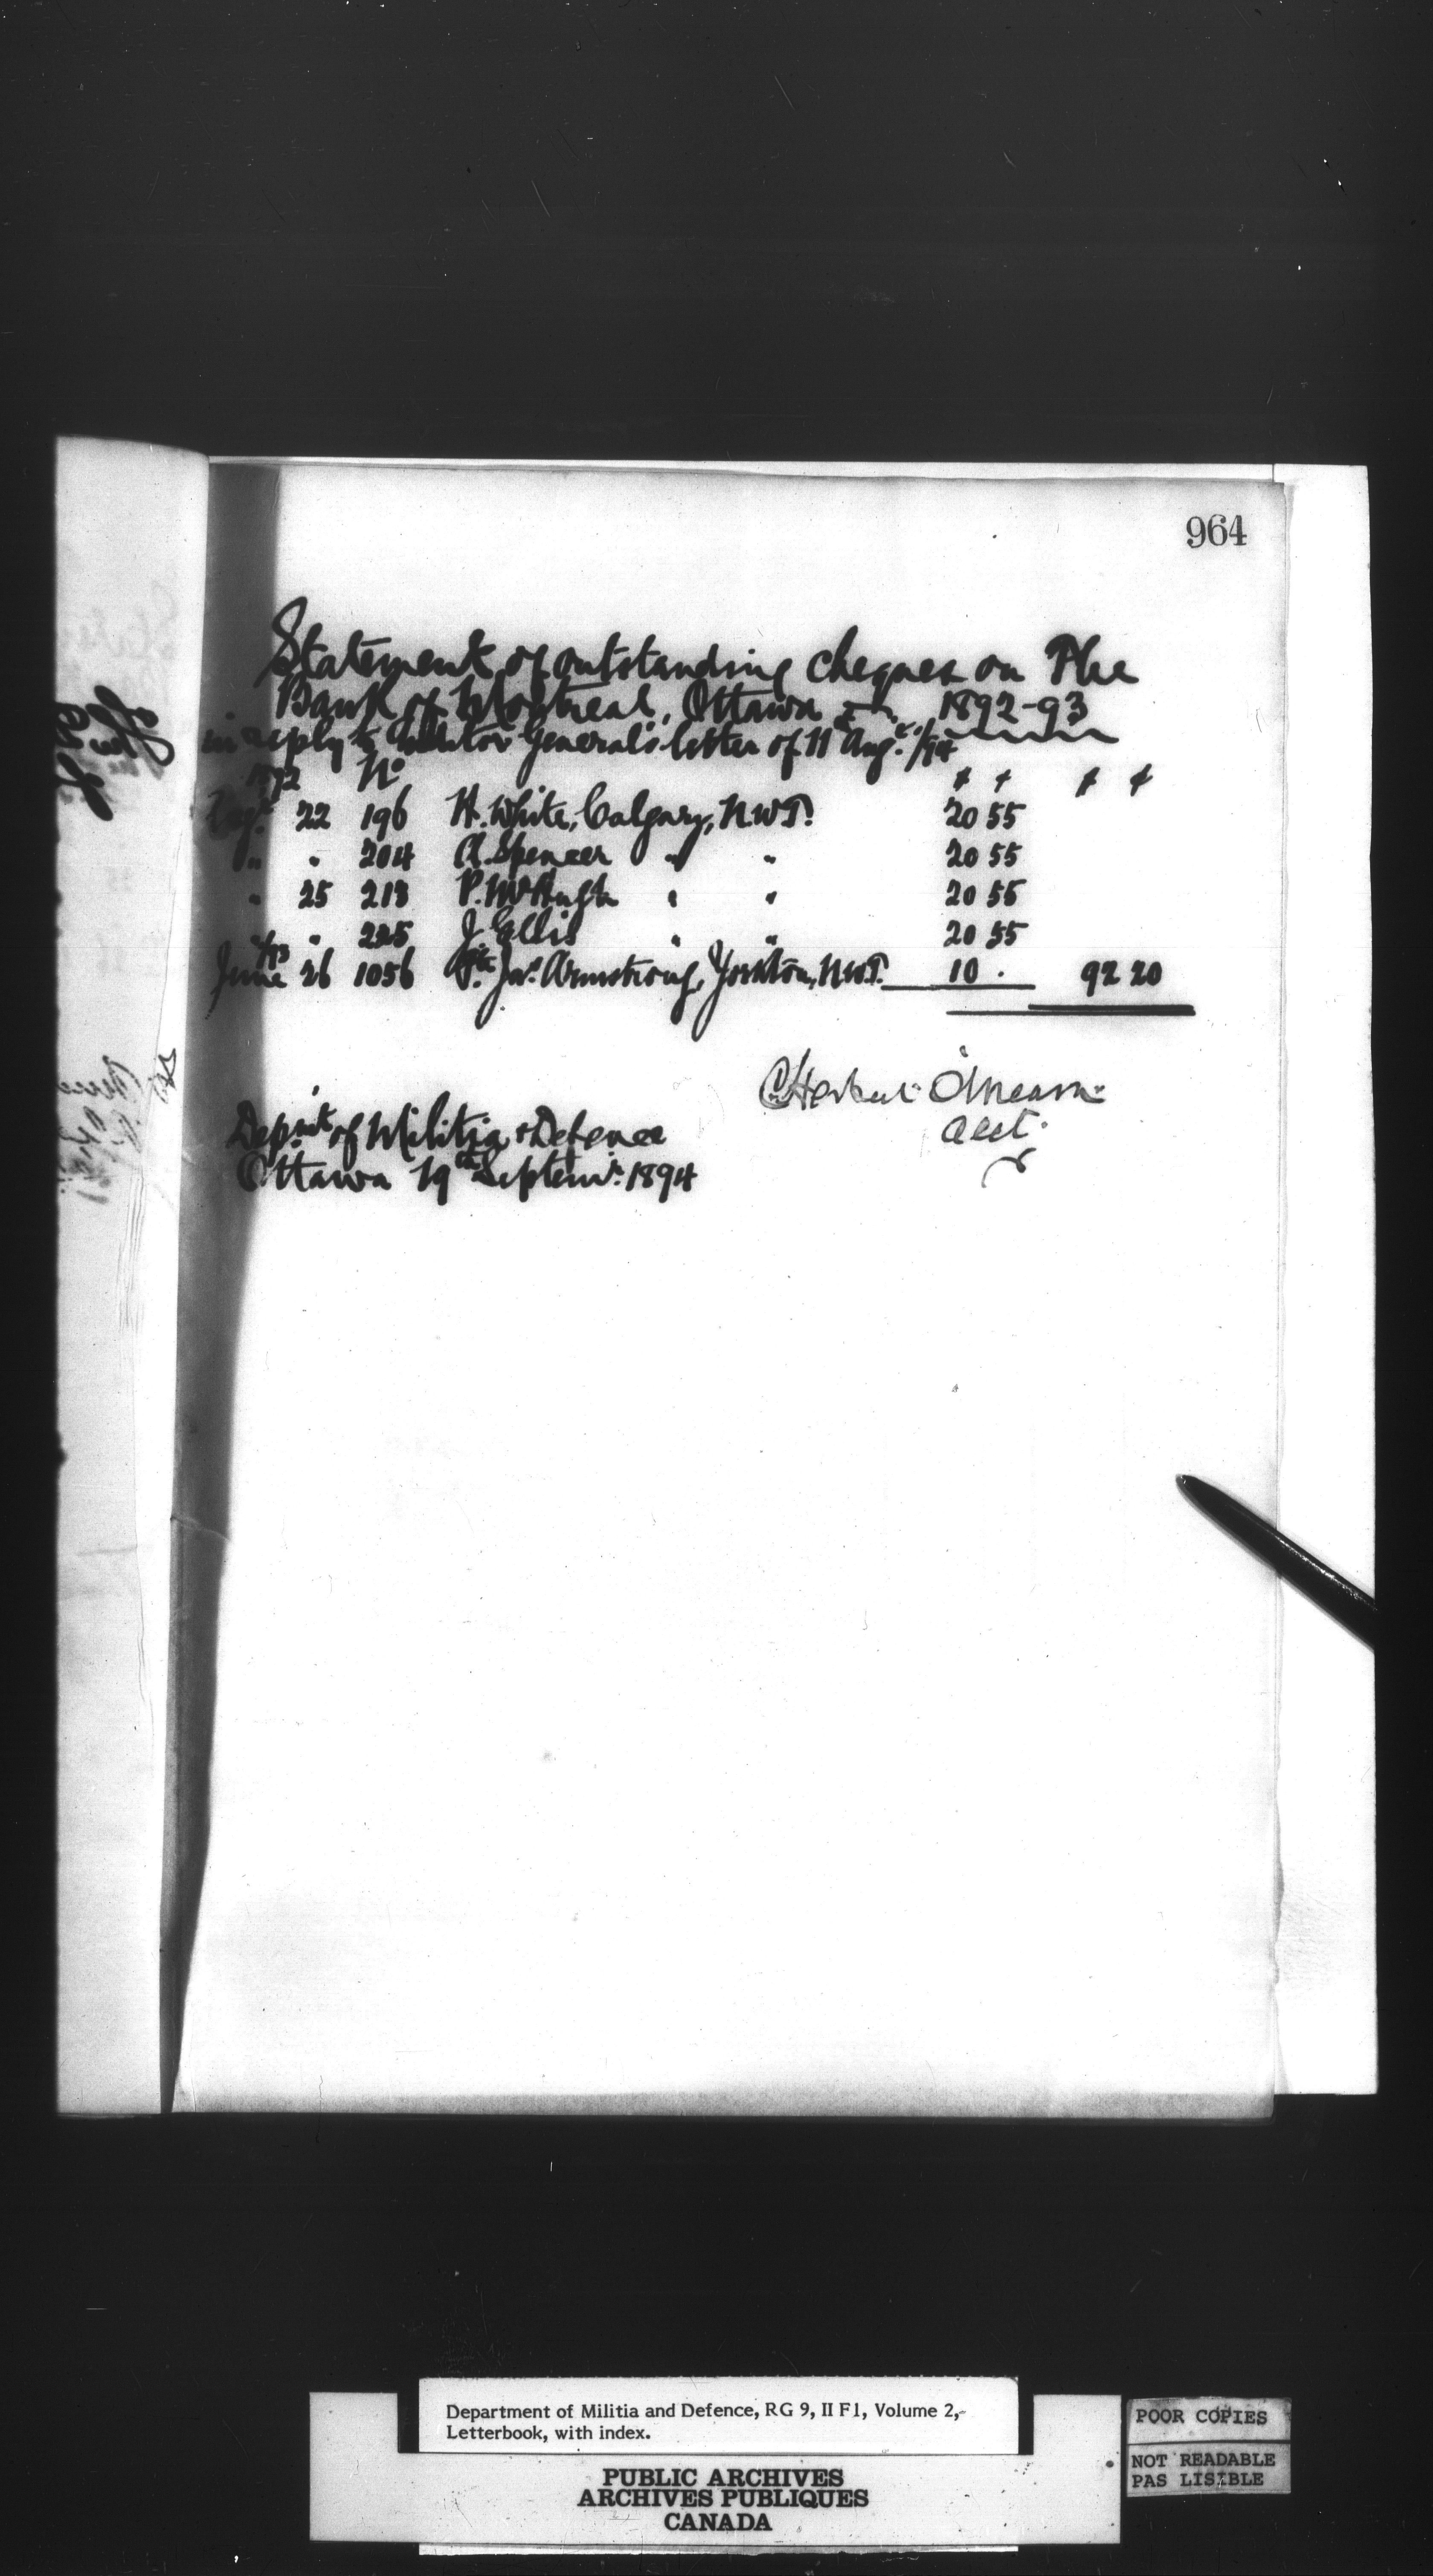 964
Statement of outstanding cheques on The
Bank of Montreal, Ottawa 1892-93
in reply to Auditor General's letter of 11 Augt./94
1892 No $ ¢ $ ¢
22 196 H. White, Calgary, N.W.T. 20 55
" " 204 A. Spencer " " 20 55
" 25 213 P. McHugh " " 20 55
" " 225 J. Ellis " " 20 55
/93
June 26 1056 Pte. Jas. Armstrong, Yorkton, N.W.T. 10 . 92 20
C Herbert O'Meara
Acct.
Depmt. of Militia & Defence
Ottawa 19th Septemr. 1894
Department of Militia and Defence, RG 9, II F1, Volume 2,
Letterbook, with index.
PUBLIC ARCHIVES
ARCHIVES PUBLIQUES
CANADA
POOR COPIES
NOT READABLE
PAS LISIBLE